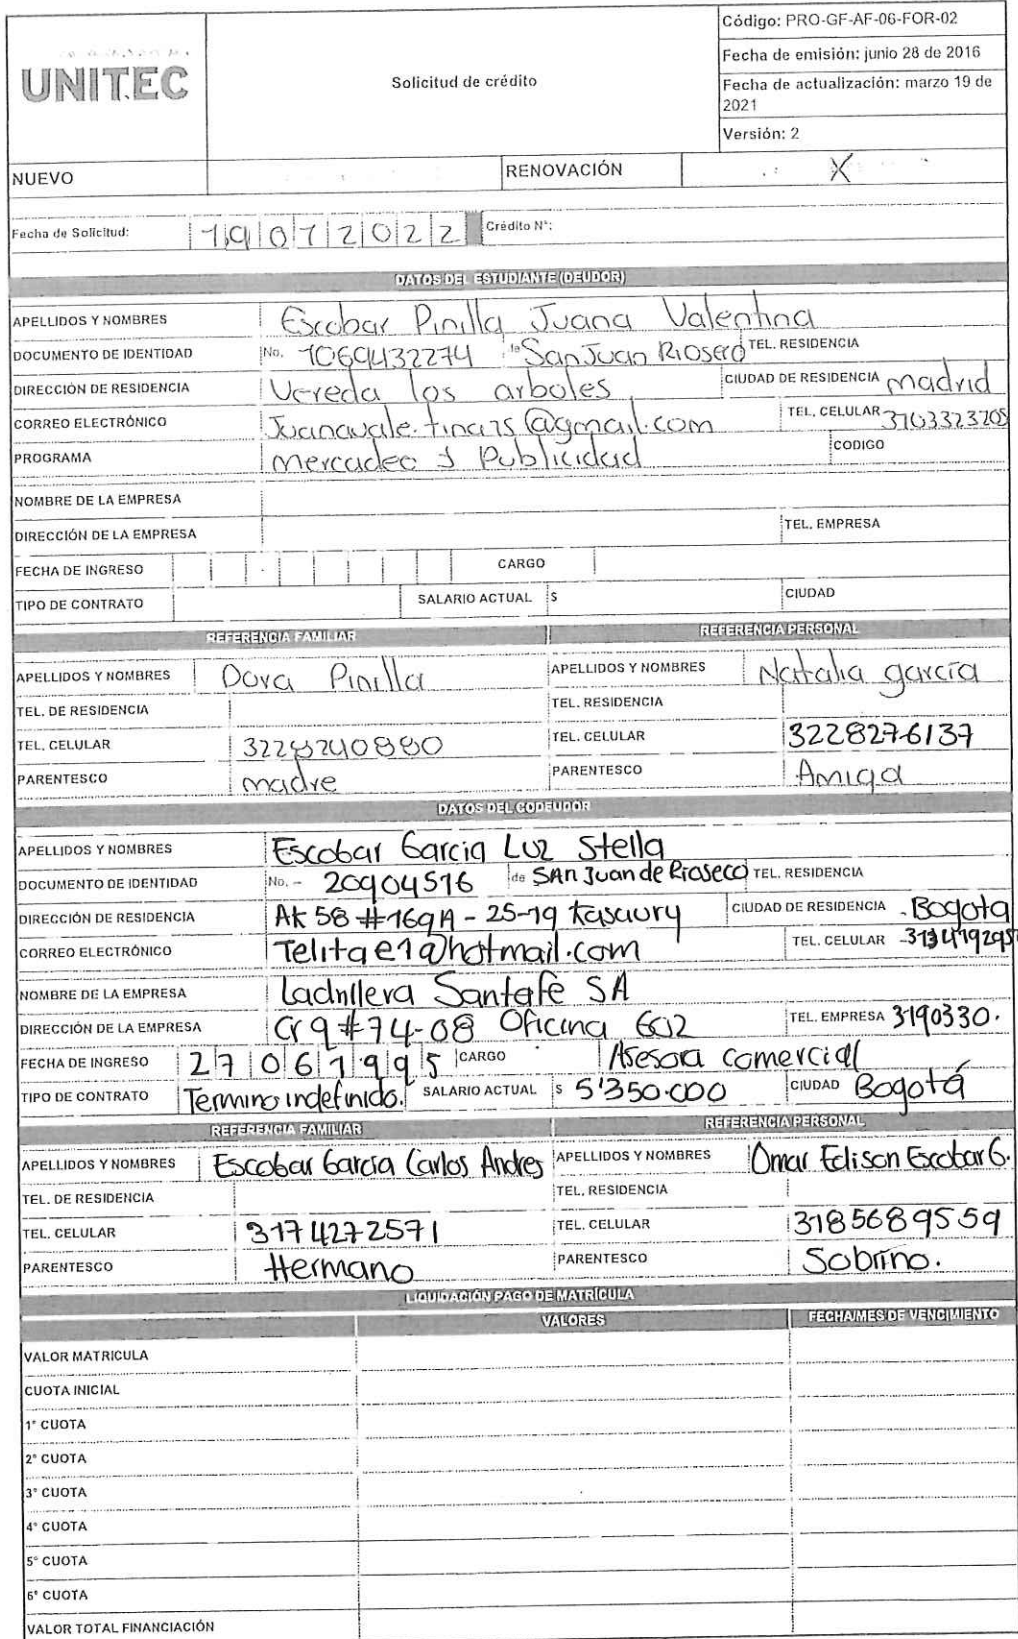 UNITEC
Solicitud de crédito
Código: PRO-GF-AF-06-FOR-02
Fecha de emisión: junio 28 de 2016
Fecha de actualización: marzo 19 de 2021
Versión: 2
NUEVO RENOVACIÓN X
Fecha de Solicitud: 19072022 Crédito N°:
DATOS DEL ESTUDIANTE (DEUDOR)
APELLIDOS Y NOMBRES Escobar Pinilla Juana Valentina
DOCUMENTO DE IDENTIDAD No. 1069432274 de San Juan Riosero TEL. RESIDENCIA
DIRECCIÓN DE RESIDENCIA Vereda los arboles CIUDAD DE RESIDENCIA madrid
CORREO ELECTRÓNICO TEL. CELULAR 3103323205
PROGRAMA mercadeo y Publicidad CODIGO
NOMBRE DE LA EMPRESA
DIRECCIÓN DE LA EMPRESA TEL. EMPRESA
FECHA DE INGRESO CARGO
TIPO DE CONTRATO SALARIO ACTUAL $ CIUDAD
REFERENCIA FAMILIAR REFERENCIA PERSONAL
APELLIDOS Y NOMBRES Dora Pinilla APELLIDOS Y NOMBRES Natalia garcía
TEL. DE RESIDENCIA TEL. RESIDENCIA
TEL. CELULAR 3228240880 TEL. CELULAR 3228276137
PARENTESCO madre PARENTESCO Amiga
DATOS DEL CODEUDOR
APELLIDOS Y NOMBRES Escobar Garcia Luz Stella
DOCUMENTO DE IDENTIDAD No. - 20904516 de SAn Juan de Rioseco TEL. RESIDENCIA
DIRECCIÓN DE RESIDENCIA AK 58 #169A - 25-19 Kasaury CIUDAD DE RESIDENCIA Bogota
CORREO ELECTRÓNICO Telitae1@hotmail.com TEL. CELULAR
NOMBRE DE LA EMPRESA Ladrillera Santafé SA
DIRECCIÓN DE LA EMPRESA Cr 9 #74-08 Oficina 602 TEL. EMPRESA 3190330.
FECHA DE INGRESO 27061995 CARGO Asesora comercial
TIPO DE CONTRATO Termino indefinido. SALARIO ACTUAL $ 5'350.000 CIUDAD Bogotá
REFERENCIA FAMILIAR REFERENCIA PERSONAL
APELLIDOS Y NOMBRES Escobar García Carlos Andres APELLIDOS Y NOMBRES Omar Edison Escobar G.
TEL. DE RESIDENCIA TEL. RESIDENCIA
TEL. CELULAR 3174272571 TEL. CELULAR 3185689559
PARENTESCO Hermano PARENTESCO Sobrino.
LIQUIDACIÓN PAGO DE MATRÍCULA
VALORES FECHA/MES DE VENCIMIENTO
VALOR MATRICULA
CUOTA INICIAL
1° CUOTA
2° CUOTA
3° CUOTA
4° CUOTA
5° CUOTA
6° CUOTA
VALOR TOTAL FINANCIACIÓN